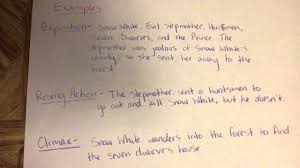 Examples
Exposition- Snow White, Evil stepmother, Huntsmen,
Seven Dwarves, and the Prince. The
stepmother was jealous of Snow White's
beauty, so she sent her away to the
forest
Rising Action- The stepmother sent a huntsmen to
go out and kill Snow White, but he doesn't.
Climax- Snow White wanders into the forest to find
the seven dwarve's house